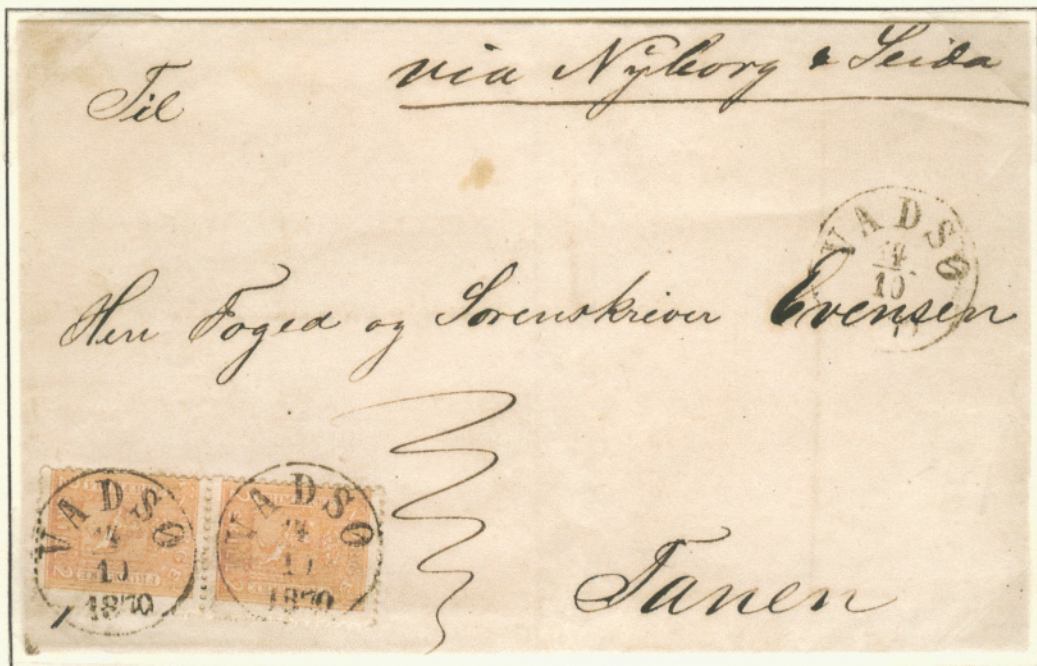 via Nyborg & Seida
Til
VADSØ
14
10
Herr Foged og Sorenskriver Evensen
VADSØ
14
10
1870
VADSØ
14
10
1870
2
Tanen